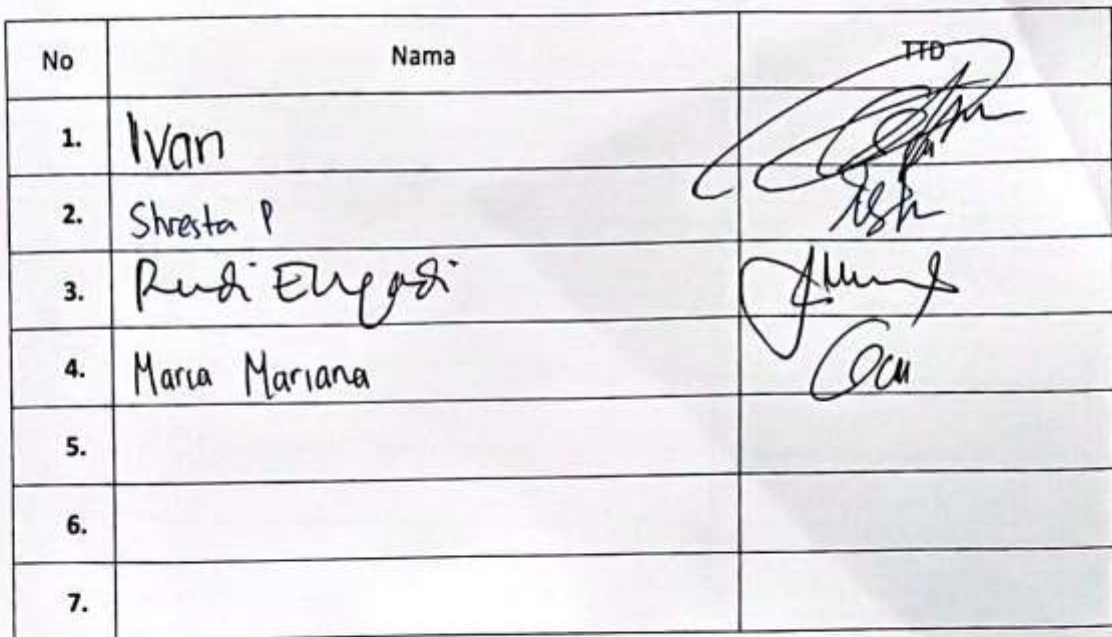 No Nama TTD
1. Ivan
2. Shresta P
3. Rudi
4. Maria Mariana
5.
6.
7.